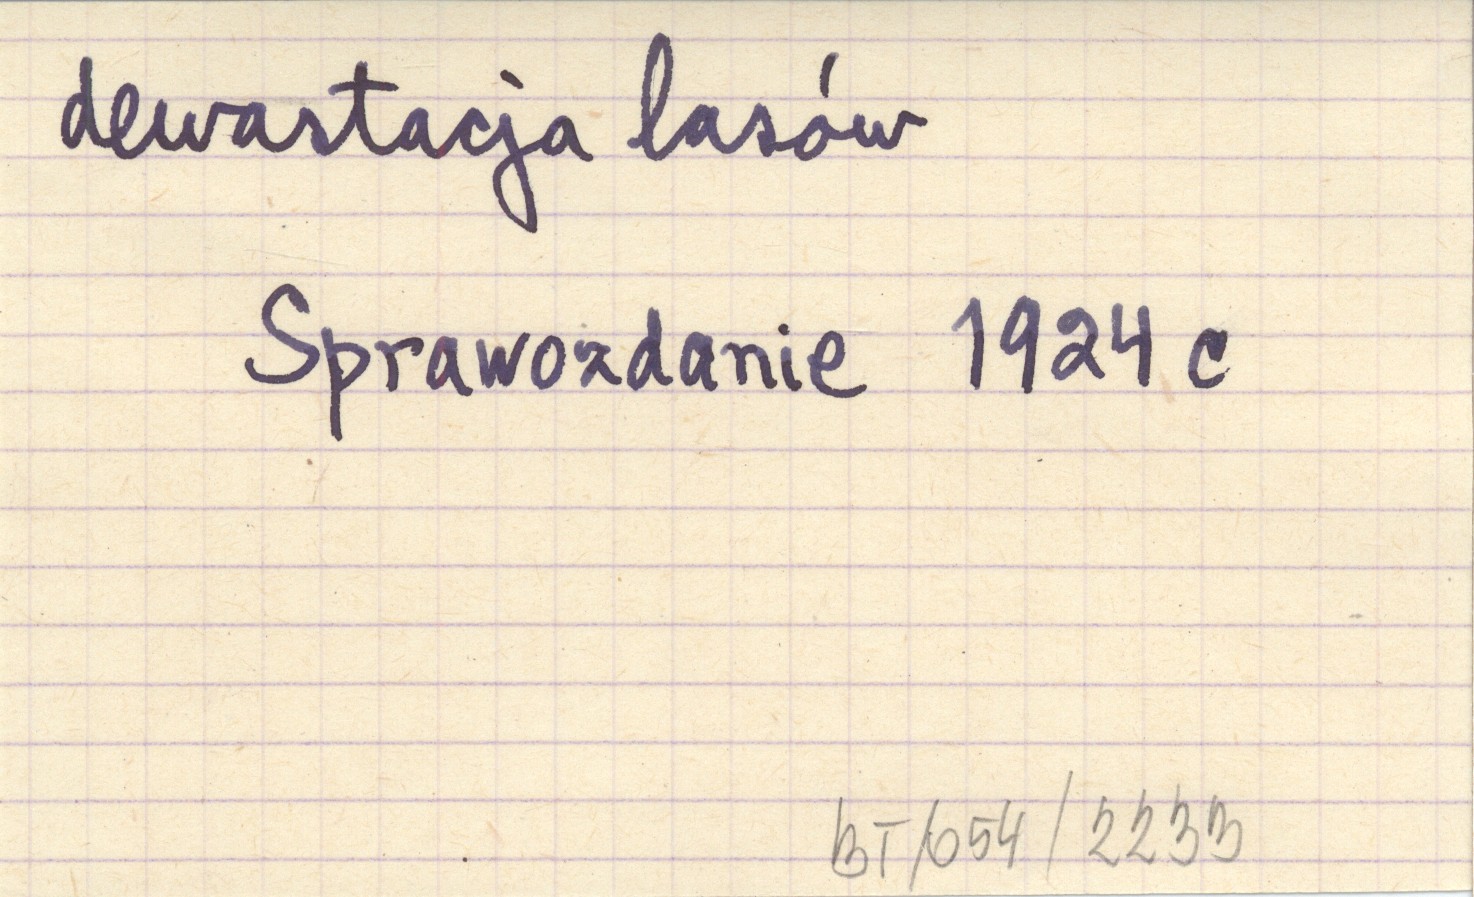 dewastacja lasów
Sprawozdanie 1924 c
BT/654/2233